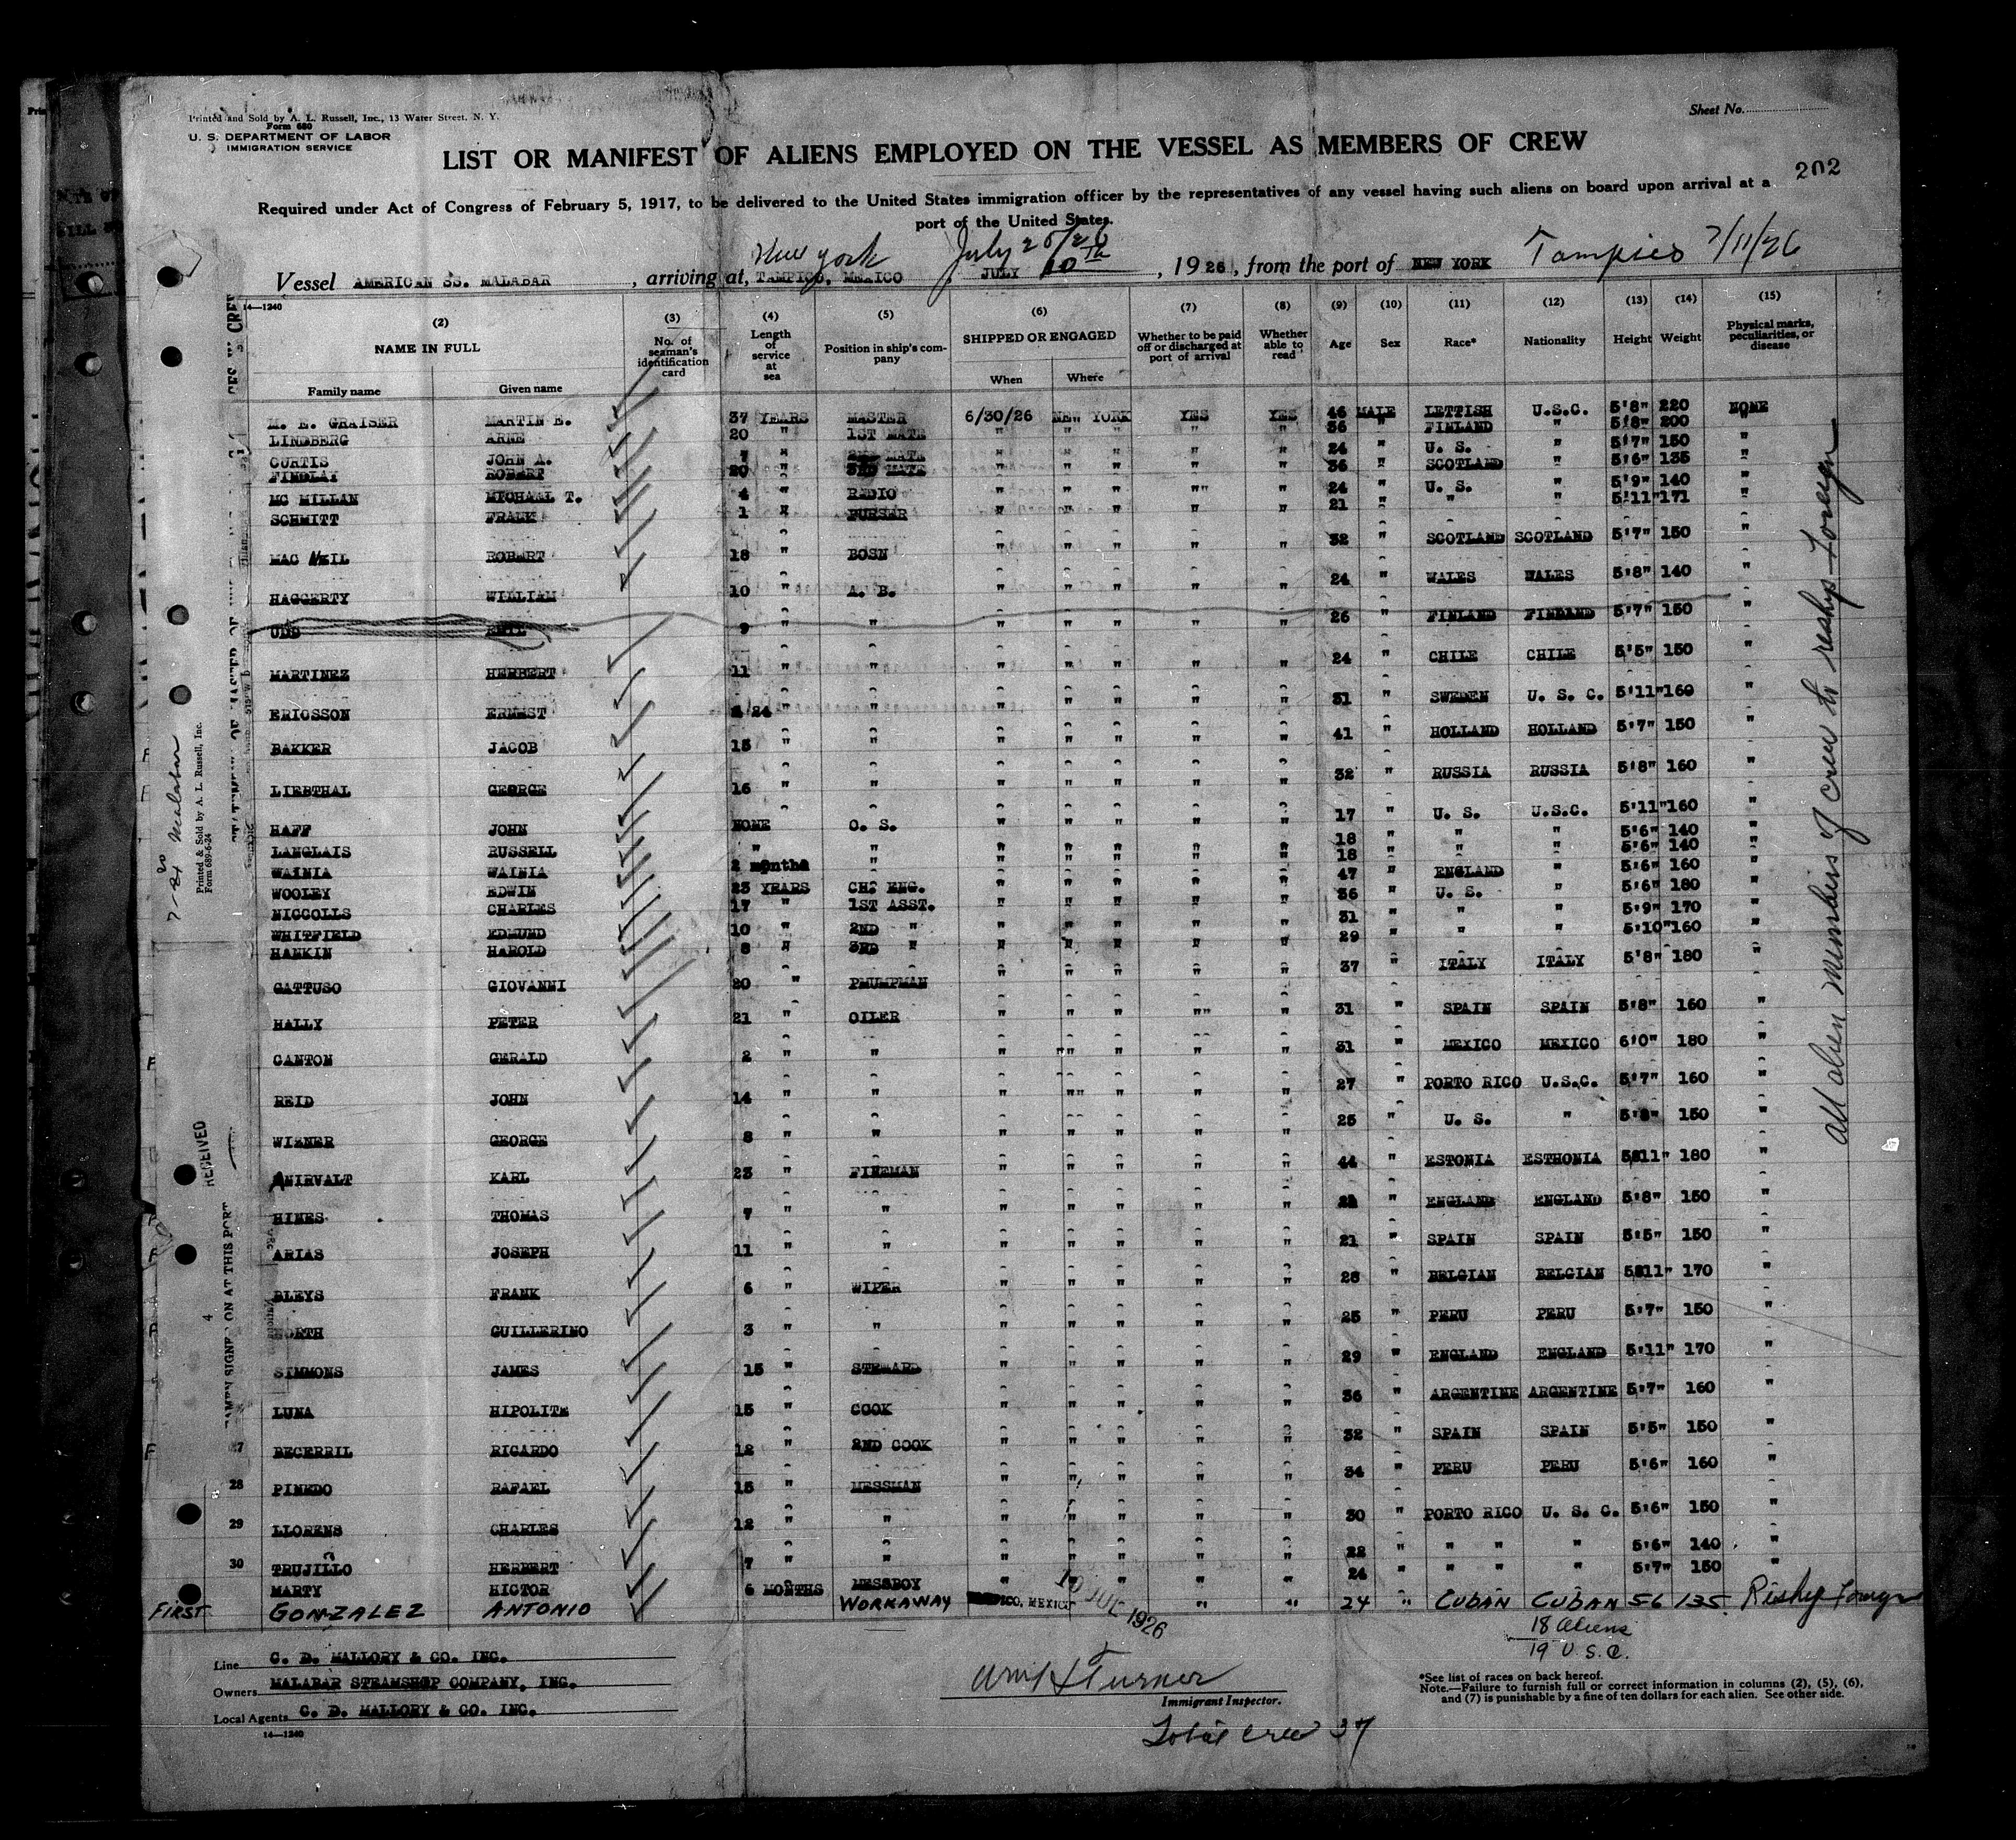 Printed and Sold by A. L. Russell, Inc., 13 Water Street, N. Y.
Form 680
U. S. DEPARTMENT OF LABOR
IMMIGRATION SERVICE
Sheet No.
LIST OR MANIFEST OF ALIENS EMPLOYED ON THE VESSEL AS MEMBERS OF CREW
202
Required under Act of Congress of February 5, 1917, to be delivered to the United States immigration officer by the representatives of any vessel having such aliens on board upon arrival at a
port of the United States.
New York July 20/26 Tampico 7/11/26
Vessel AMERICAN SS. MALABAR, arriving at, TAMPICO, MEXICO JULY 10th, 1926, from the port of NEW YORK
14—1240
(2) (3) (4) (5) (6) (7) (8) (9) (10) (11) (12) (13) (14) (15)
NAME IN FULL No. of seaman's identification card Length of service at sea Position in ship's company SHIPPED OR ENGAGED Whether to be paid off or discharged at port of arrival Whether able to read Age Sex Race* Nationality Height Weight Physical marks, peculiarities, or disease
Family name Given name When Where
M. E. GRAISER MARTIN E. 37 YEARS MASTER 6/30/26 NEW YORK YES YES 46 MALE LETTISH U.S.C. 5'8" 220 NONE
LINDBERG ARNE 20 " 1ST MATE " " " " 36 " FINLAND " 5'8" 200 "
CURTIS JOHN A. 7 " 2ND MATE " " " " 24 " U. S. " 5'7" 150 "
FINDLAY ROBERT 20 " 3RD MATE " " " " 36 " SCOTLAND " 5'6" 135 "
MC MILLAN MICHAAL T. 4 " RADIO " " " " 24 " U. S. " 5'9" 140 "
SCHMITT FRANK 1 " PURSER " " " " 21 " " " 5'11" 171 "
MAC NEIL ROBERT 18 " BOSN " " " " 32 " SCOTLAND SCOTLAND 5'7" 150 "
HAGGERTY WILLIAM 10 " A. B. " " " " 24 " WALES WALES 5'8" 140 "
UDD EMIL 9 " " " " " " 26 " FINLAND FINLAND 5'7" 150 "
MARTINEZ HERBERT 11 " " " " " " 24 " CHILE CHILE 5'5" 150 "
ERICSSON ERNEST 24 " " " " " " 31 " SWEDEN U. S. C. 5'11" 160 "
BAKKER JACOB 15 " " " " " " 41 " HOLLAND HOLLAND 5'7" 150 "
LIEBTHAL GEORGE 16 " " " " " " 32 " RUSSIA RUSSIA 5'8" 160 "
HAFF JOHN NONE O. S. " " " " 17 " U. S. U.S.C. 5'11" 160 "
LANGLAIS RUSSELL " " " " " " 18 " " " 5'6" 140 "
WAINIA WAINIA 2 months " " " " " 18 " " " 5'6" 140 "
WOOLEY EDWIN 23 YEARS CH? ENG. " " " " 47 " ENGLAND " 5'6" 160 "
NICCOLLS CHARLES 17 " 1ST ASST. " " " " 36 " U. S. " 5'6" 180 "
WHITFIELD EDMUND 10 " 2ND " " " " " 31 " " " 5'9" 170 "
HANKIN HAROLD 8 " 3RD " " " " " 29 " " " 5'10" 160 "
GATTUSO GIOVANNI 20 " PMUMPMAN " " " " 37 " ITALY ITALY 5'8" 180 "
HALLY PETER 21 " OILER " " " " 31 " SPAIN SPAIN 5'8" 160 "
CANTON GERALD 2 " " " " " " 31 " MEXICO MEXICO 6'0" 180 "
REID JOHN 14 " " " " " " 27 " PORTO RICO U.S.C. 5'7" 160 "
WIENER GEORGE 8 " " " " " " 25 " U. S. " 5'8" 150 "
ANIRVALT KARL 23 " FIREMAN " " " " 44 " ESTONIA ESTHONIA 5'11" 180 "
HINES THOMAS 7 " " " " " " 22 " ENGLAND ENGLAND 5'8" 150 "
ARIAS JOSEPH 11 " " " " " " 21 " SPAIN SPAIN 5'5" 150 "
BLEYS FRANK 6 " WIPER " " " " 28 " BELGIAN BELGIAN 5'11" 170 "
NORTH GUILLERINO 3 " " " " " " 25 " PERU PERU 5'7" 150 "
SIMMONS JAMES 15 " STEWARD " " " " 29 " ENGLAND ENGLAND 5'11" 170 "
LUNA HIPOLITE 15 " COOK " " " " 36 " ARGENTINE ARGENTINE 5'7" 160 "
27 BECERRIL RICARDO 12 " 2ND COOK " " " " 32 " SPAIN SPAIN 5'5" 150 "
28 PINEDO RAFAEL 15 " MESSMAN " " " " 34 " PERU PERU 5'6" 160 "
29 LLORENS CHARLES 12 " " " " " " 30 " PORTO RICO U. S. C. 5'6" 150 "
30 TRUJILLO HERBERT 7 " " " " " " 22 " " " " 5'6" 140 "
MARTY HICTOR 6 MONTHS MESSBOY " " " " 24 " " " " 5'7" 150 "
FIRST GONZALEZ ANTONIO WORKAWAY MEXICO 10 JUL 1926 " " 24 " CUBAN CUBAN 56 135 Reship Foreign
18 Aliens
19 U. S. C.
Line C. D. MALLORY & CO. INC.
Owners MALABAR STEAMSHOP COMPANY, INC.
Local Agents C. D. MALLORY & CO. INC.
14—1240
Wm H Turner
Immigrant Inspector.
Total crew 37
*See list of races on back hereof.
Note.—Failure to furnish full or correct information in columns (2), (5), (6),
and (7) is punishable by a fine of ten dollars for each alien. See other side.
All alien members of crew to reship foreign
Malabar
Printed & Sold by A. L. Russell, Inc.
Form 689-6-24
RECEIVED
SIGNED ON AT THIS PORT